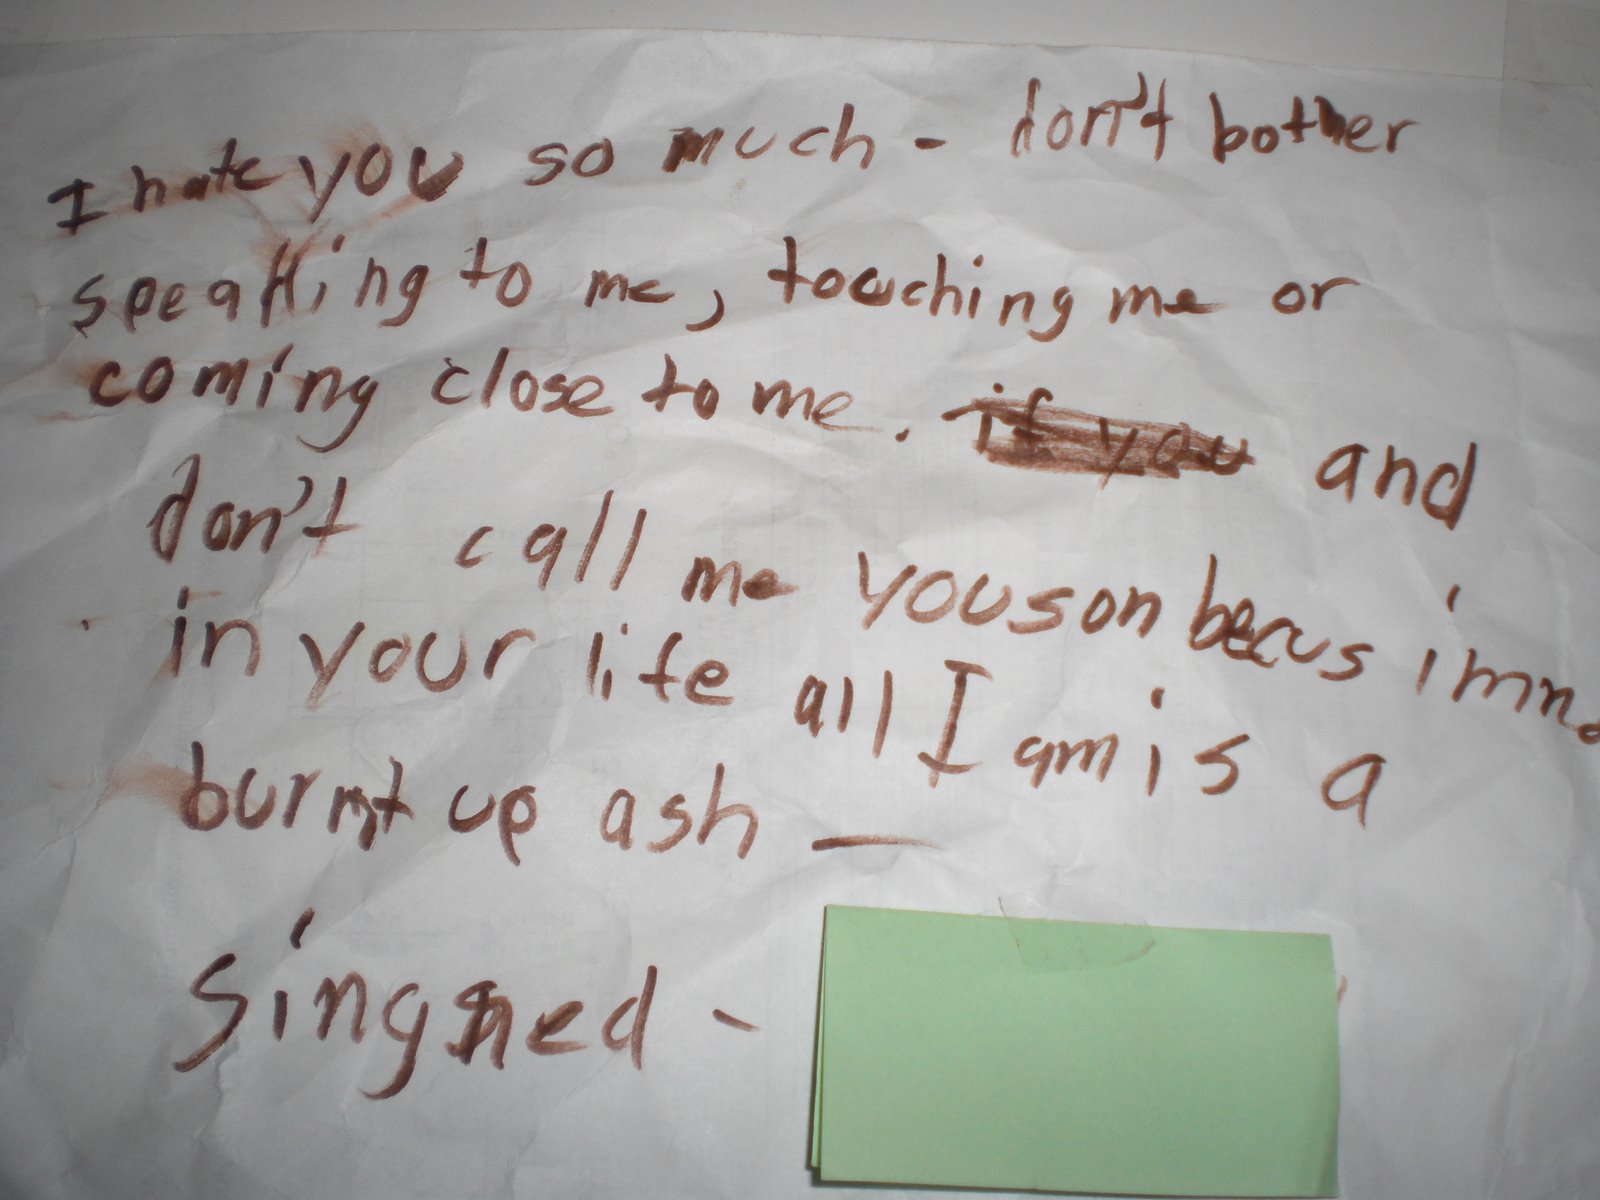 I hate you so much - don't bother
speaking to me, touching me or
coming close to me. if you and
don't call me youson becus imno
in your life all I am is a
burnt up ash —
singned -